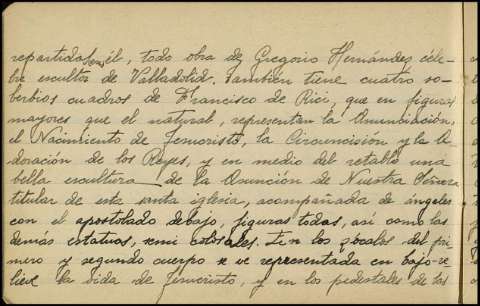 repartidas en él, todo obra de Gregorio Hernández céle-
bre escultor de Valladolid. También tiene cuatro so-
berbios cuadros de Francisco de Rici, que en figuras
mayores que el natural, representan la Anunciación,
el Nacimiento de Jesucristo, la Circuncisión y la A-
doración de los Reyes, y en medio del retablo una
bella escultura de la Asunción de Nuestra Señora
titular de esta santa iglesia, acompañada de ángeles
con el apostolado debajo, figuras todas, así como las
demás estatuas, semi colosales. En los zócalos del pri-
mero y segundo cuerpo se ve representada en bajo-re-
lieve la vida de Jesucristo, y en los pedestales de los